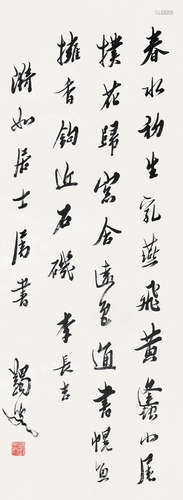 春水初生乳燕飛黃蜂小尾
撲花歸窗含遠色通書幌魚
擁香鉤近石磯 李長吉
漪如居士屬書
蠲叟